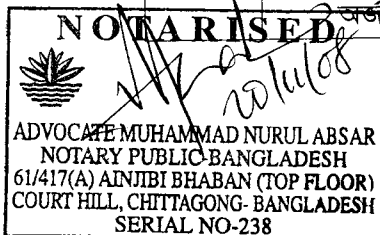 NOTARISED
20/11/08
ADVOCATE MUHAMMAD NURUL ABSAR
NOTARY PUBLIC-BANGLADESH
61/417(A) AINJIBI BHABAN (TOP FLOOR)
COURT HILL, CHITTAGONG- BANGLADESH
SERIAL NO-238